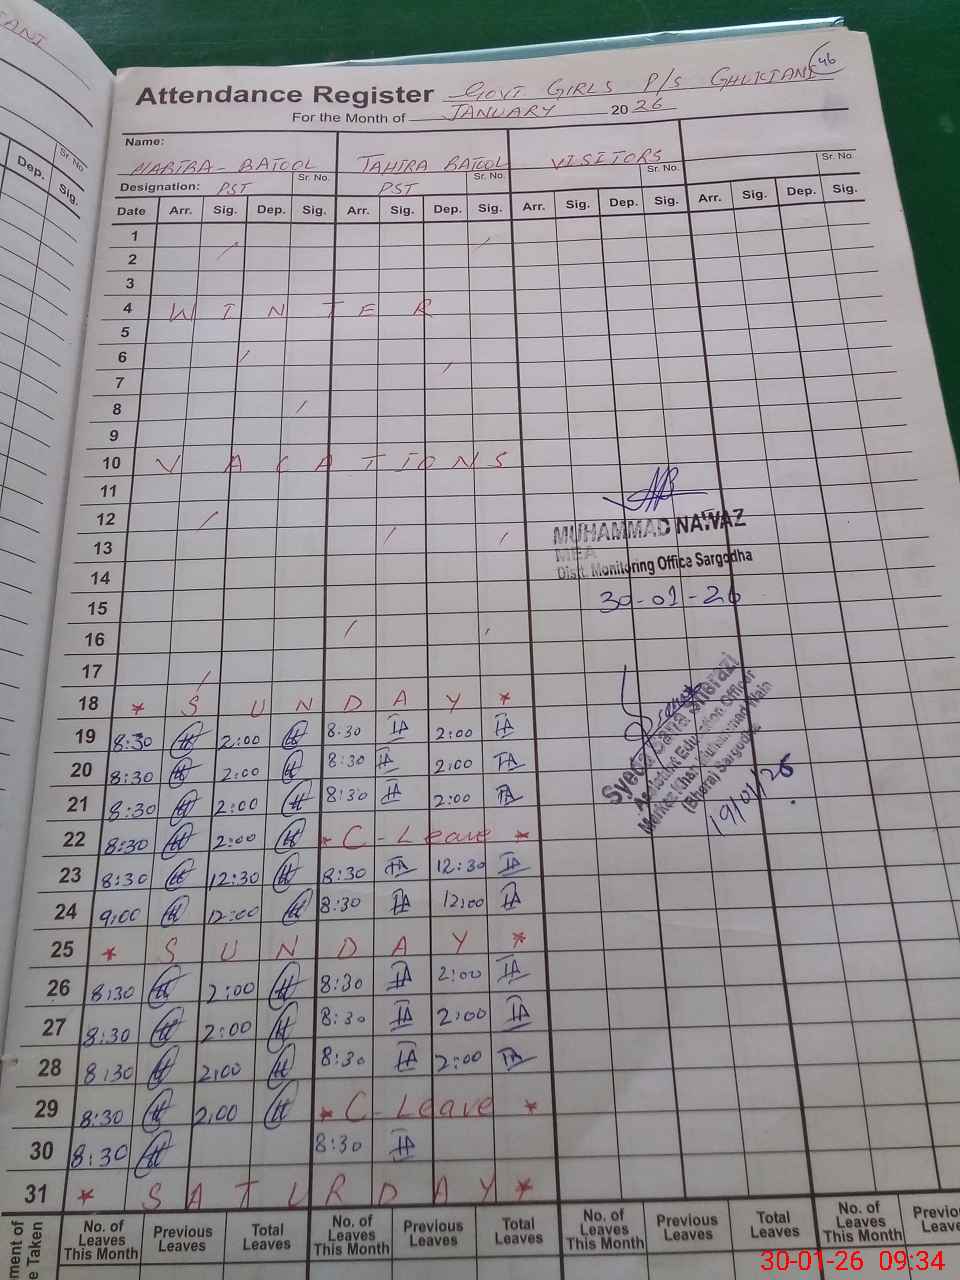 46
Attendance Register GOVT GIRLS P/S
For the Month of JANUARY 2026
Name:
BATOOL TAHIRA BATOOL VISITORS
Sr. No. Sr. No. Sr. No. Sr. No.
Designation: PST PST
Date Arr. Sig. Dep. Sig. Arr. Sig. Dep. Sig. Arr. Sig. Dep. Sig. Arr. Sig. Dep. Sig.
1
2
3
4 WINTER
5
6
7
8
9
10 VACATIONS
11
12
13
14
15
16
17
MUHAMMAD NAWAZ
MEA
Distt. Monitoring Office Sargodha
30-01-26
18 * SUNDAY *
19 8:30 2:00 8:30 2:00
20 8:30 2:00 8:30 2:00
21 8:30 2:00 8:30 2:00
22 8:30 2:00 * C-Leave *
23 8:30 12:30 8:30 12:30
24 9:00 12:00 8:30 12:00
25 * SUNDAY *
26 8:30 2:00 8:30 2:00
27 8:30 2:00 8:30 2:00
28 8:30 2:00 8:30 2:00
29 8:30 2:00 * C-Leave *
30 8:30 8:30
31 * SATURDAY *
Assistant Education Officer
(Bhera) Sargodha
19/01/26
No. of Leaves This Month Previous Leaves Total Leaves No. of Leaves This Month Previous Leaves Total Leaves No. of Leaves This Month Previous Leaves Total Leaves No. of Leaves This Month
Dep. Sr. No.
Sig.
30-01-26 09:34